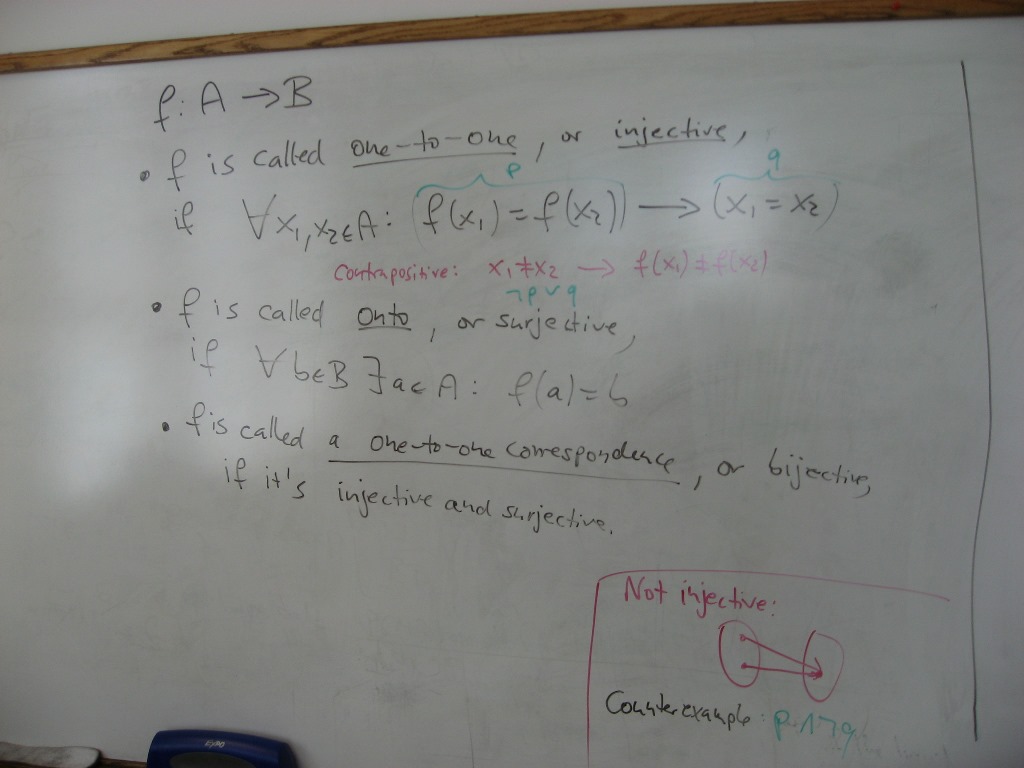 f: A → B
• f is called one-to-one, or injective,
p
q
if ∀x₁,x₂∈A: (f(x₁) = f(x₂)) → (x₁ = x₂)
Contrapositive: x₁≠x₂ → f(x₁)≠f(x₂)
¬p∨q
• f is called onto, or surjective,
if ∀b∈B ∃a∈A: f(a)=b
• f is called a one-to-one correspondence, or bijective,
if it's injective and surjective.
Not injective:
Counterexample: p∧¬q
EXPO